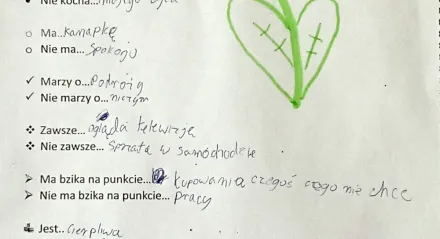 Nie kocha...mojego ojca
Ma..kanapkę
Nie ma... spokoju
Marzy o...Podróży
Nie marzy o...niczym
Zawsze... ogląda telewizję
Nie zawsze... Sprząta w samochodzie
Ma bzika na punkcie... kupowania czegoś czego nie chce
Nie ma bzika na punkcie... pracy
Jest.. cierpliwa